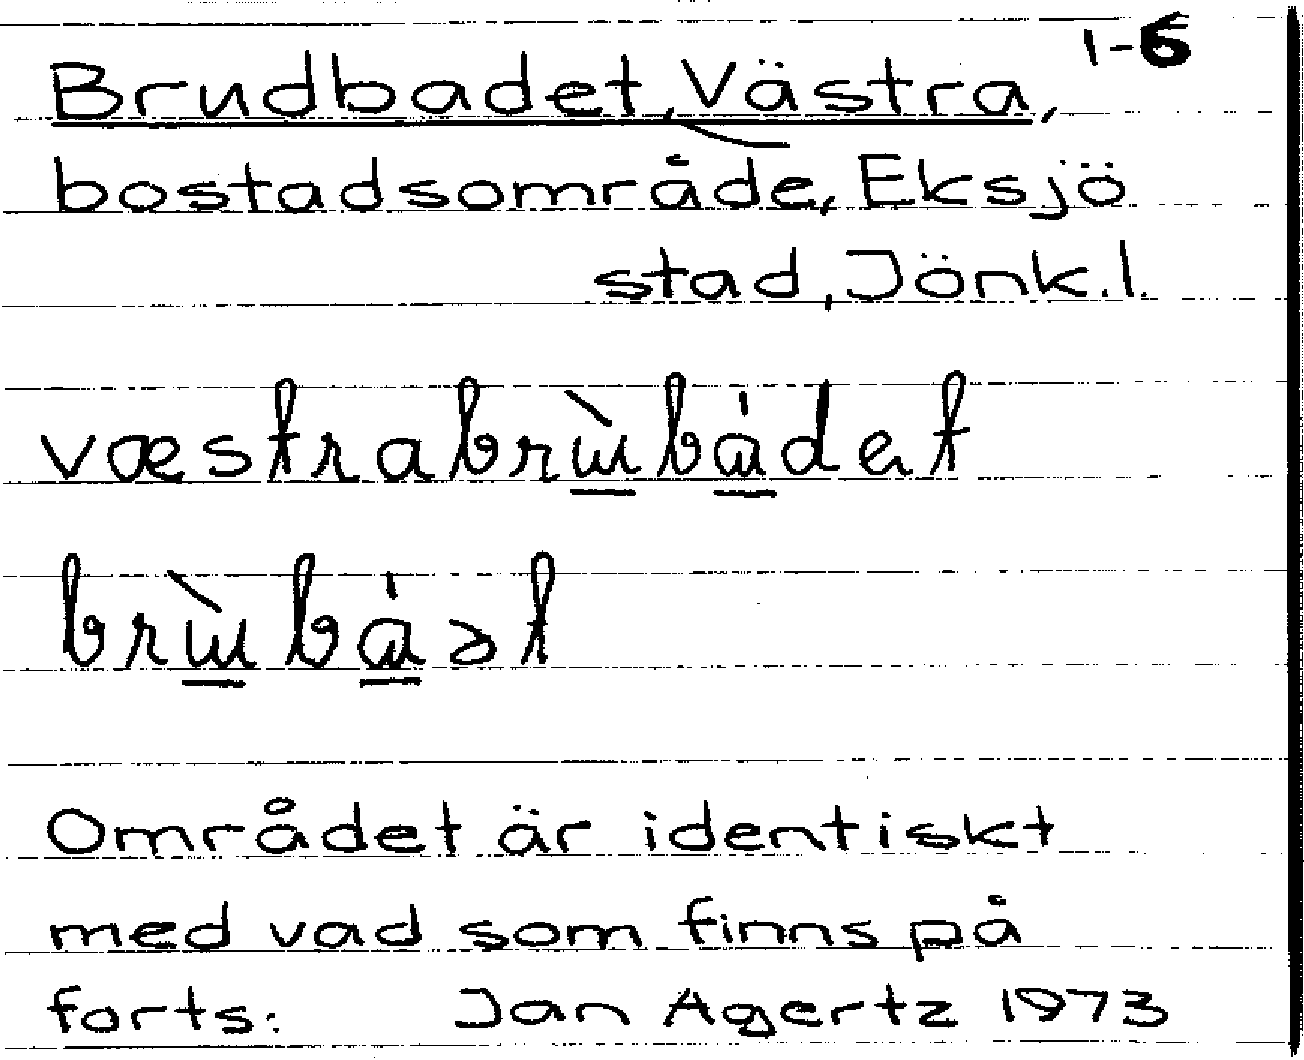 1-6
Brudbadet, Västra,
bostadsområde, Eksjö
stad, Jönk.l.
væstrabrùbádet
brùbáət
Området är identiskt
med vad som finns på
forts: Jan Agertz 1973